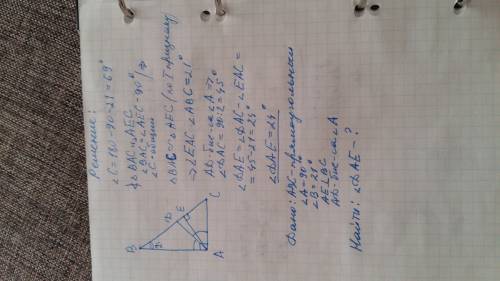 Решение:
∠C=180-90-21=69°
ΔBAC и ΔAEC
∠BAC=∠AEC=90° | ⇒
∠C-общий
ΔBAC∾ΔAEC (по I признаку)
⇒∠EAC=∠ABC=21°
AD-бис-са∠A⇒
∠DAC=90:2=45°
∠DAE=∠DAC-∠EAC=
=45-21=24°
∠DAE=24°
B
21
D
E
C
A
Дано: ABC-прямоугольный
∠A=90°
∠B=21°
AE⊥BC
AD-бис-са∠A
Найти: ∠DAE-?